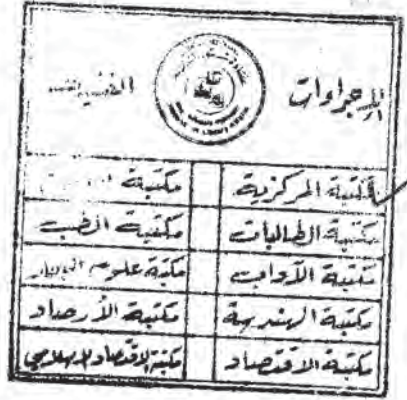 الإجراءات الفنية
المكتبة المركزية مكتبة
مكتبة الطالبات مكتبة الطب
مكتبة الآداب مكتبة علوم البحار
مكتبة الهندسة مكتبة الأرصاد
مكتبة الاقتصاد مكتبة الاقتصاد الإسلامي